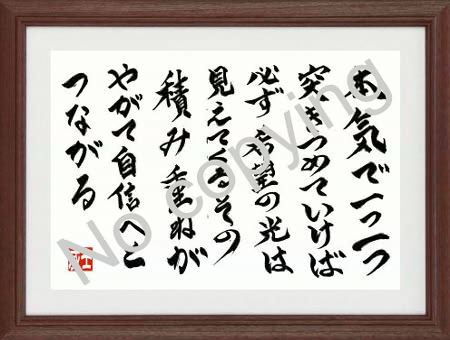 本気で一つ一つ
突きつめていけば
必ず希望の光は
見えてくるその
積み重ねが
やがて自信へと
つながる
No copying